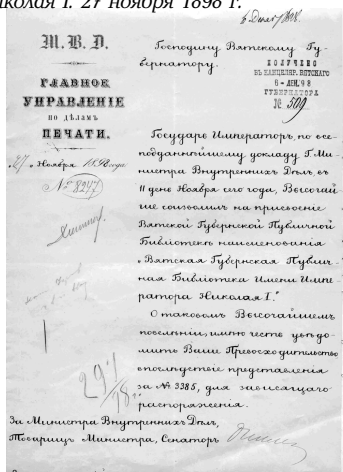 колая I. 27 ноября 1898 г.
6 Дек. 1898.
М. В. Д.
ГЛАВНОЕ
УПРАВЛЕНІЕ
ПО ДѢЛАМЪ
ПЕЧАТИ.
27 Ноября 1898 года
№ 8247
Господину Вятскому Гу-
бернатору.
ПОЛУЧЕНО
ВЪ КАНЦЕЛЯР. ВЯТСКАГО
6 - ДЕК. 98
ГУБЕРНАТОРА
№ 509
Государь Императоръ, по все-
подданнѣйшему докладу Г. Ми-
нистра Внутреннихъ Дѣлъ, въ
11 день Ноября сего года, Высочай-
ше соизволилъ на присвоеніе
Вятской Губернской Публичной
Библіотекѣ наименованія
"Вятская Губернская Публич-
ная Библіотека Имени Импе-
ратора Николая I."
О таковомъ Высочайшемъ
повелѣніи, имѣю честь увѣдо-
мить Ваше Превосходительство
въ послѣдствіе представленія
за № 3385, для зависящаго
распоряженія.
За Министра Внутреннихъ Дѣлъ,
Товарищъ Министра, Сенаторъ